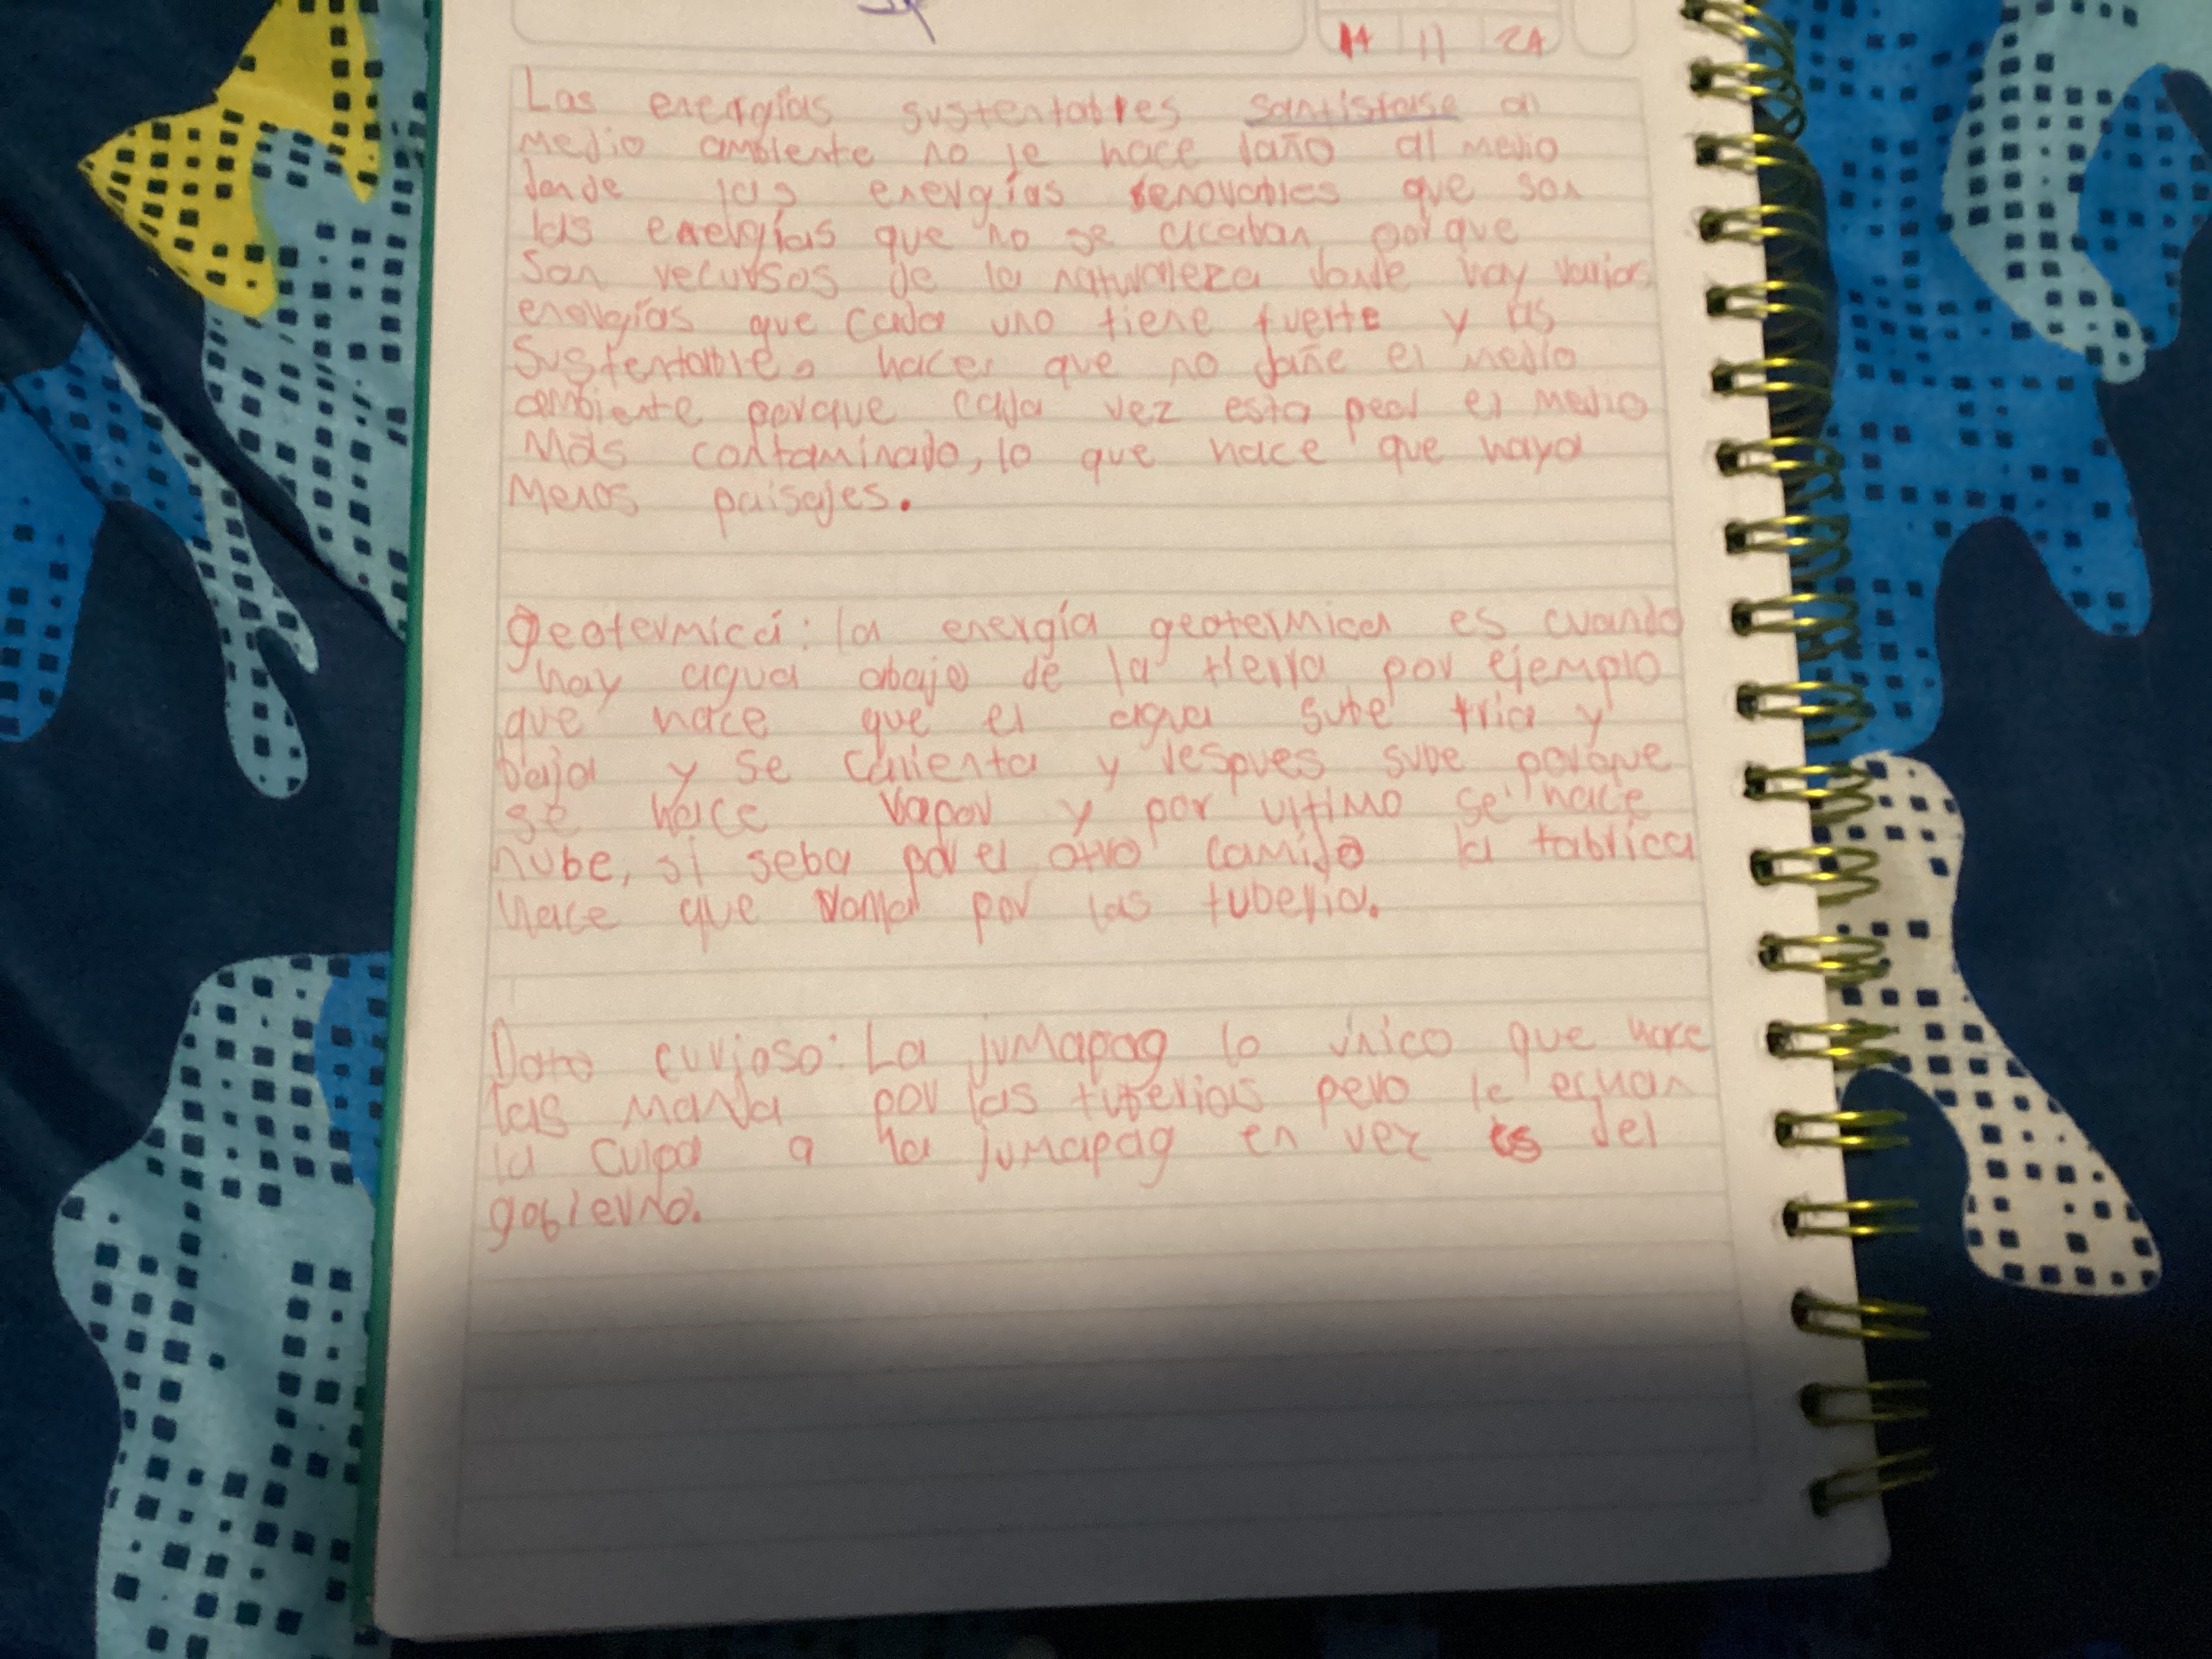 14 11 24
Las energías sustentables santistase al
medio ambiente no le hace daño al medio
donde las energías renovables que son
las energías que no se acaban porque
son recursos de la naturaleza donde hay varias
energías que cada uno tiene fuerte y las
sustentables hacer que no dañe el medio
ambiente porque cada vez esta peor el medio
más contaminado, lo que hace que haya
menos paisajes.
geotermica: la energía geotermica es cuando
hay agua abajo de la tierra por ejemplo
que hace que el agua sube fria y
baja y se calienta y despues sube porque
se hace vapor y por ultimo se hace
nube, si seba por el otro camino la fabrica
hace que por las tuberia.
Dato curioso: La jumapag lo único que hace
las manda por las tuberias pero le echan
la culpa a la jumapag en vez es del
gobierno.